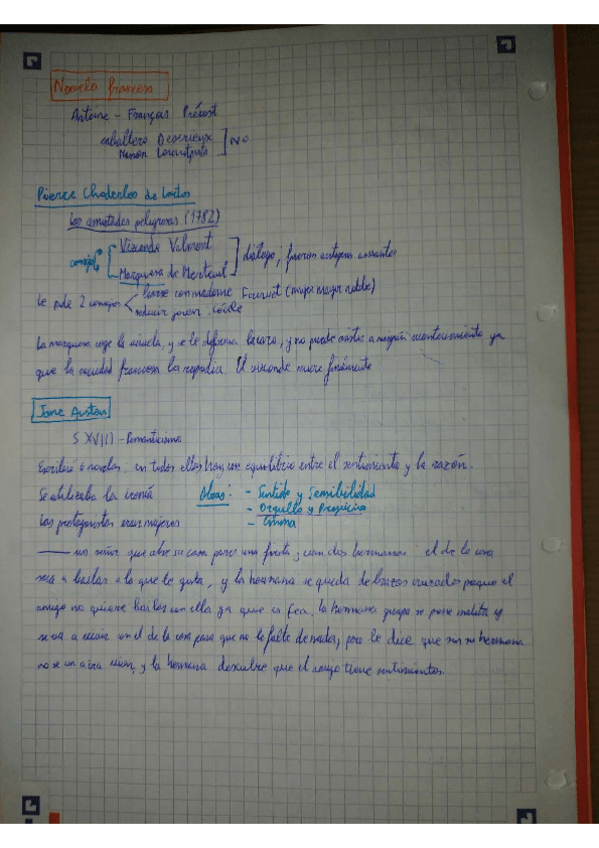 Novela francesa
Antoine-François Prévost
caballero Desgrieux
Manon
NO
Pierre Choderlos de Laclos
Las amistades peligrosas (1782)
Vizconde Valmont
Marquesa de Merteuil
diálogo, fueron antiguos amantes
Le pide 2 consejos
liarse con madame Tourvel (mujer mayor noble)
seducir joven
La marquesa coge la viruela, y se le deforma la cara, y no puede asistir a ningún acontecimiento ya
que la sociedad francesa la repudia. El vizconde muere finalmente
Jane Austen
S XVIII - Romanticismo
Escribió 6 novelas: en todas ellas hay un equilibrio entre el sentimiento y la razón.
Se utilizaba la ironía
Obras: - Sentido y Sensibilidad
- Orgullo y Prejuicio
- Emma
Las protagonistas eran mujeres
un señor que abre su casa para una fiesta; van dos hermanas: el de la casa
saca a bailar a la que le gusta, y la hermana se queda de brazos cruzados porque el
amigo no quiere bailar con ella ya que es fea, la hermana guapa se pone malita y
se va a casa con el de la casa para que no le falte de nada, pero le dice que sin su hermana
no se va a, y la hermana descubre que el amigo tiene sentimientos.